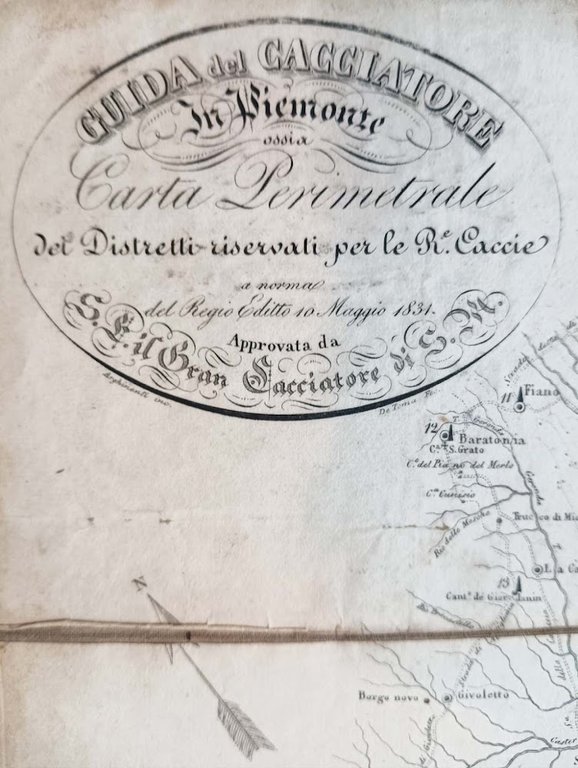 GUIDA del CACCIATORE
In Piemonte
ossia
Carta Perimetrale
dei Distretti riservati per le R.e Caccie
a norma
del Regio Editto 10 Maggio 1831.
Approvata da
S. E. il Gran Cacciatore di S. M.
inc.
De Toma
Strada
11 Fiano
12 Baratonia
C.a S. Grato
C.e del Piano del Merlo
Ceronda
Rio delle Mosche
13
Cant.a de Giordanin
N
Borgo novo
Givoletto